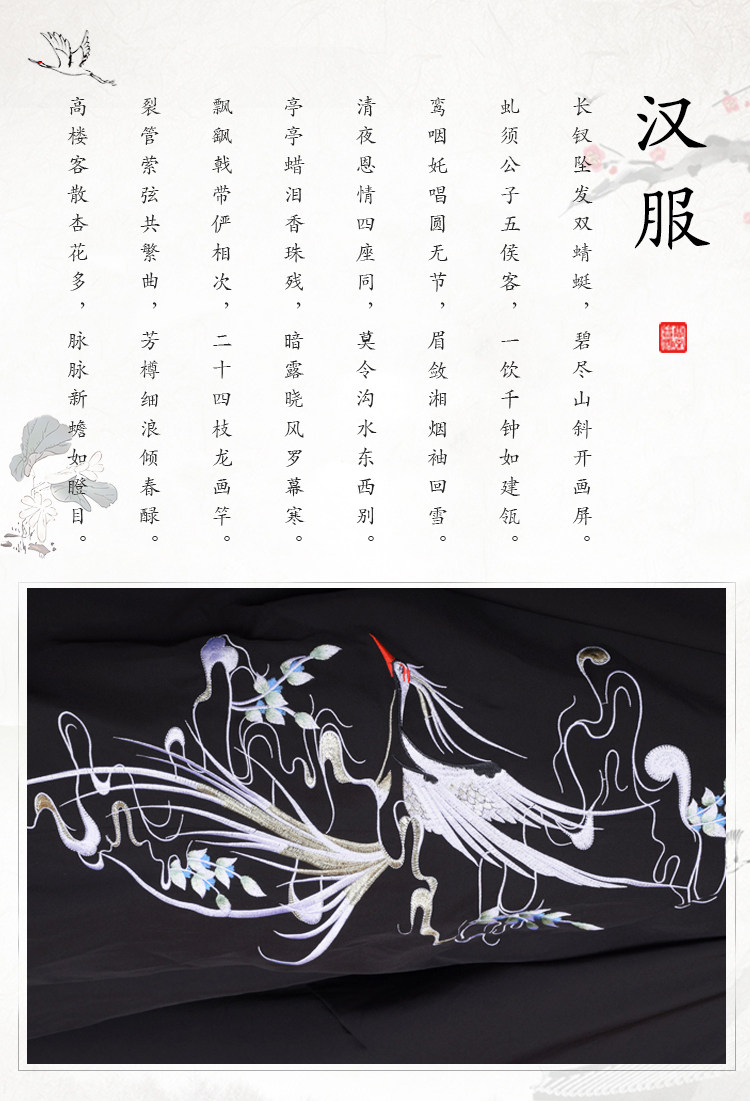 汉服
长钗坠发双蜻蜓，碧尽山斜开画屏。
虬须公子五侯客，一饮千钟如建瓴。
鸾咽姹唱圆无节，眉敛湘烟袖回雪。
清夜恩情四座同，莫令沟水东西别。
亭亭蜡泪香珠残，暗露晓风罗幕寒。
飘飖戟带俨相次，二十四枝龙画竿。
裂管萦弦共繁曲，芳樽细浪倾春醁。
高楼客散杏花多，脉脉新蟾如瞪目。